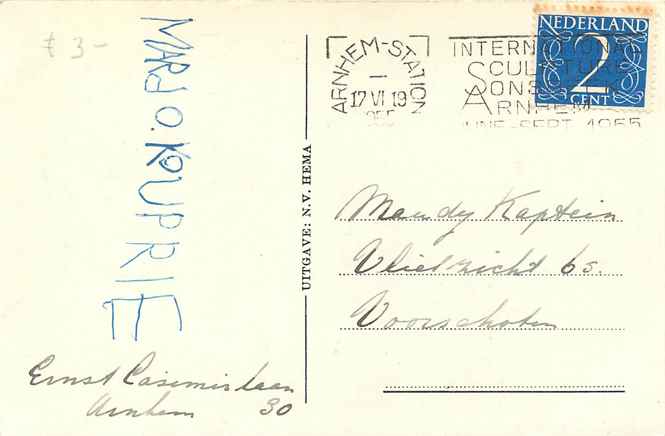 £ 3-
MARJO.KOUPRIE
Ernst Casimirlaan
Arnhem 30
UITGAVE: N.V. HEMA
ARNHEM-STATION
17 VI 19
955
INTERNATIONAL
SCULPTURE
SONSBEEK
ARNHEM
JUNE-SEPT. 1955
NEDERLAND
2
CENT
Mandy Kaptein
Vlietzicht 6s.
Voorschoten